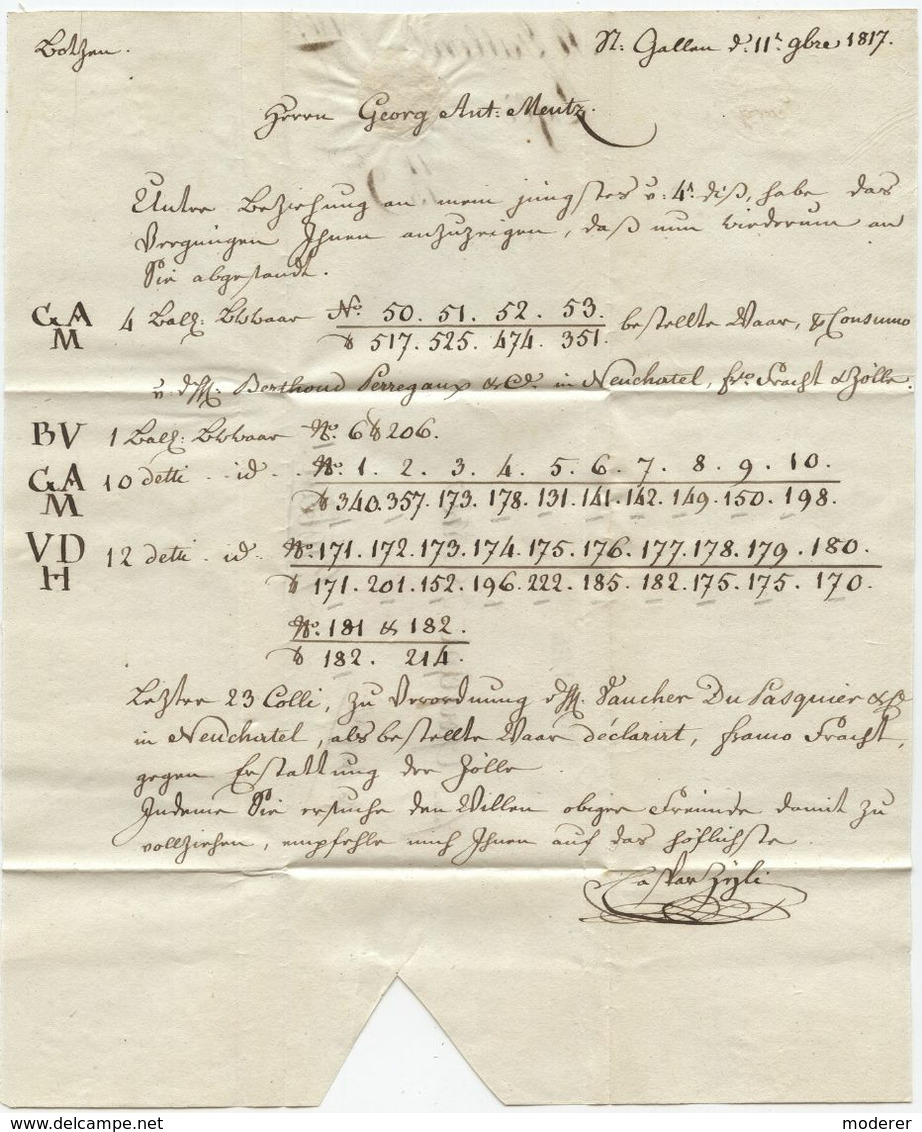 Botzen.
St: Gallen d: 11t. 9bre 1817.
Herrn Georg Ant: Mentz.
Unter Beziehung an mein jüngstes v: 4n. diß, habe das
Vergnügen Ihnen anzuzeigen, daß nun wiederum an
Sie abgesandt.
GA 4 Ball: Bwwaar No. 50. 51. 52. 53 bestellte Waar, & Consumo
M ℔ 517. 525. 474. 351.
v. dHH. Berthoud Perregaux & Co. in Neuchatel, fco Fracht & Zölle.
BV 1 Ball: Bwwaar No. 6 ℔ 206.
GA 10 detti . id . No. 1. 2. 3. 4. 5. 6. 7. 8. 9. 10.
M ℔ 340. 357. 173. 178. 131. 141. 142. 149. 150. 198.
VD 12 detti . id . No. 171. 172. 173. 174. 175. 176. 177. 178. 179. 180.
H ℔ 171. 201. 152. 196. 222. 185. 182. 175. 175. 170.
No. 181 & 182.
℔ 182. 214.
Letzte 23 Colli, zu Verordnung dHH. Vaucher Du Pasquier & Co
in Neuchatel, als bestellte Waar déclarirt, franco Fracht,
gegen Erstattung der Zölle
Indeme Sie ersuche den Willen obiger Freunde damit zu
vollziehen, empfehle mich Ihnen auf das höflichste
Caspar Zyli
www.delcampe.net
moderer